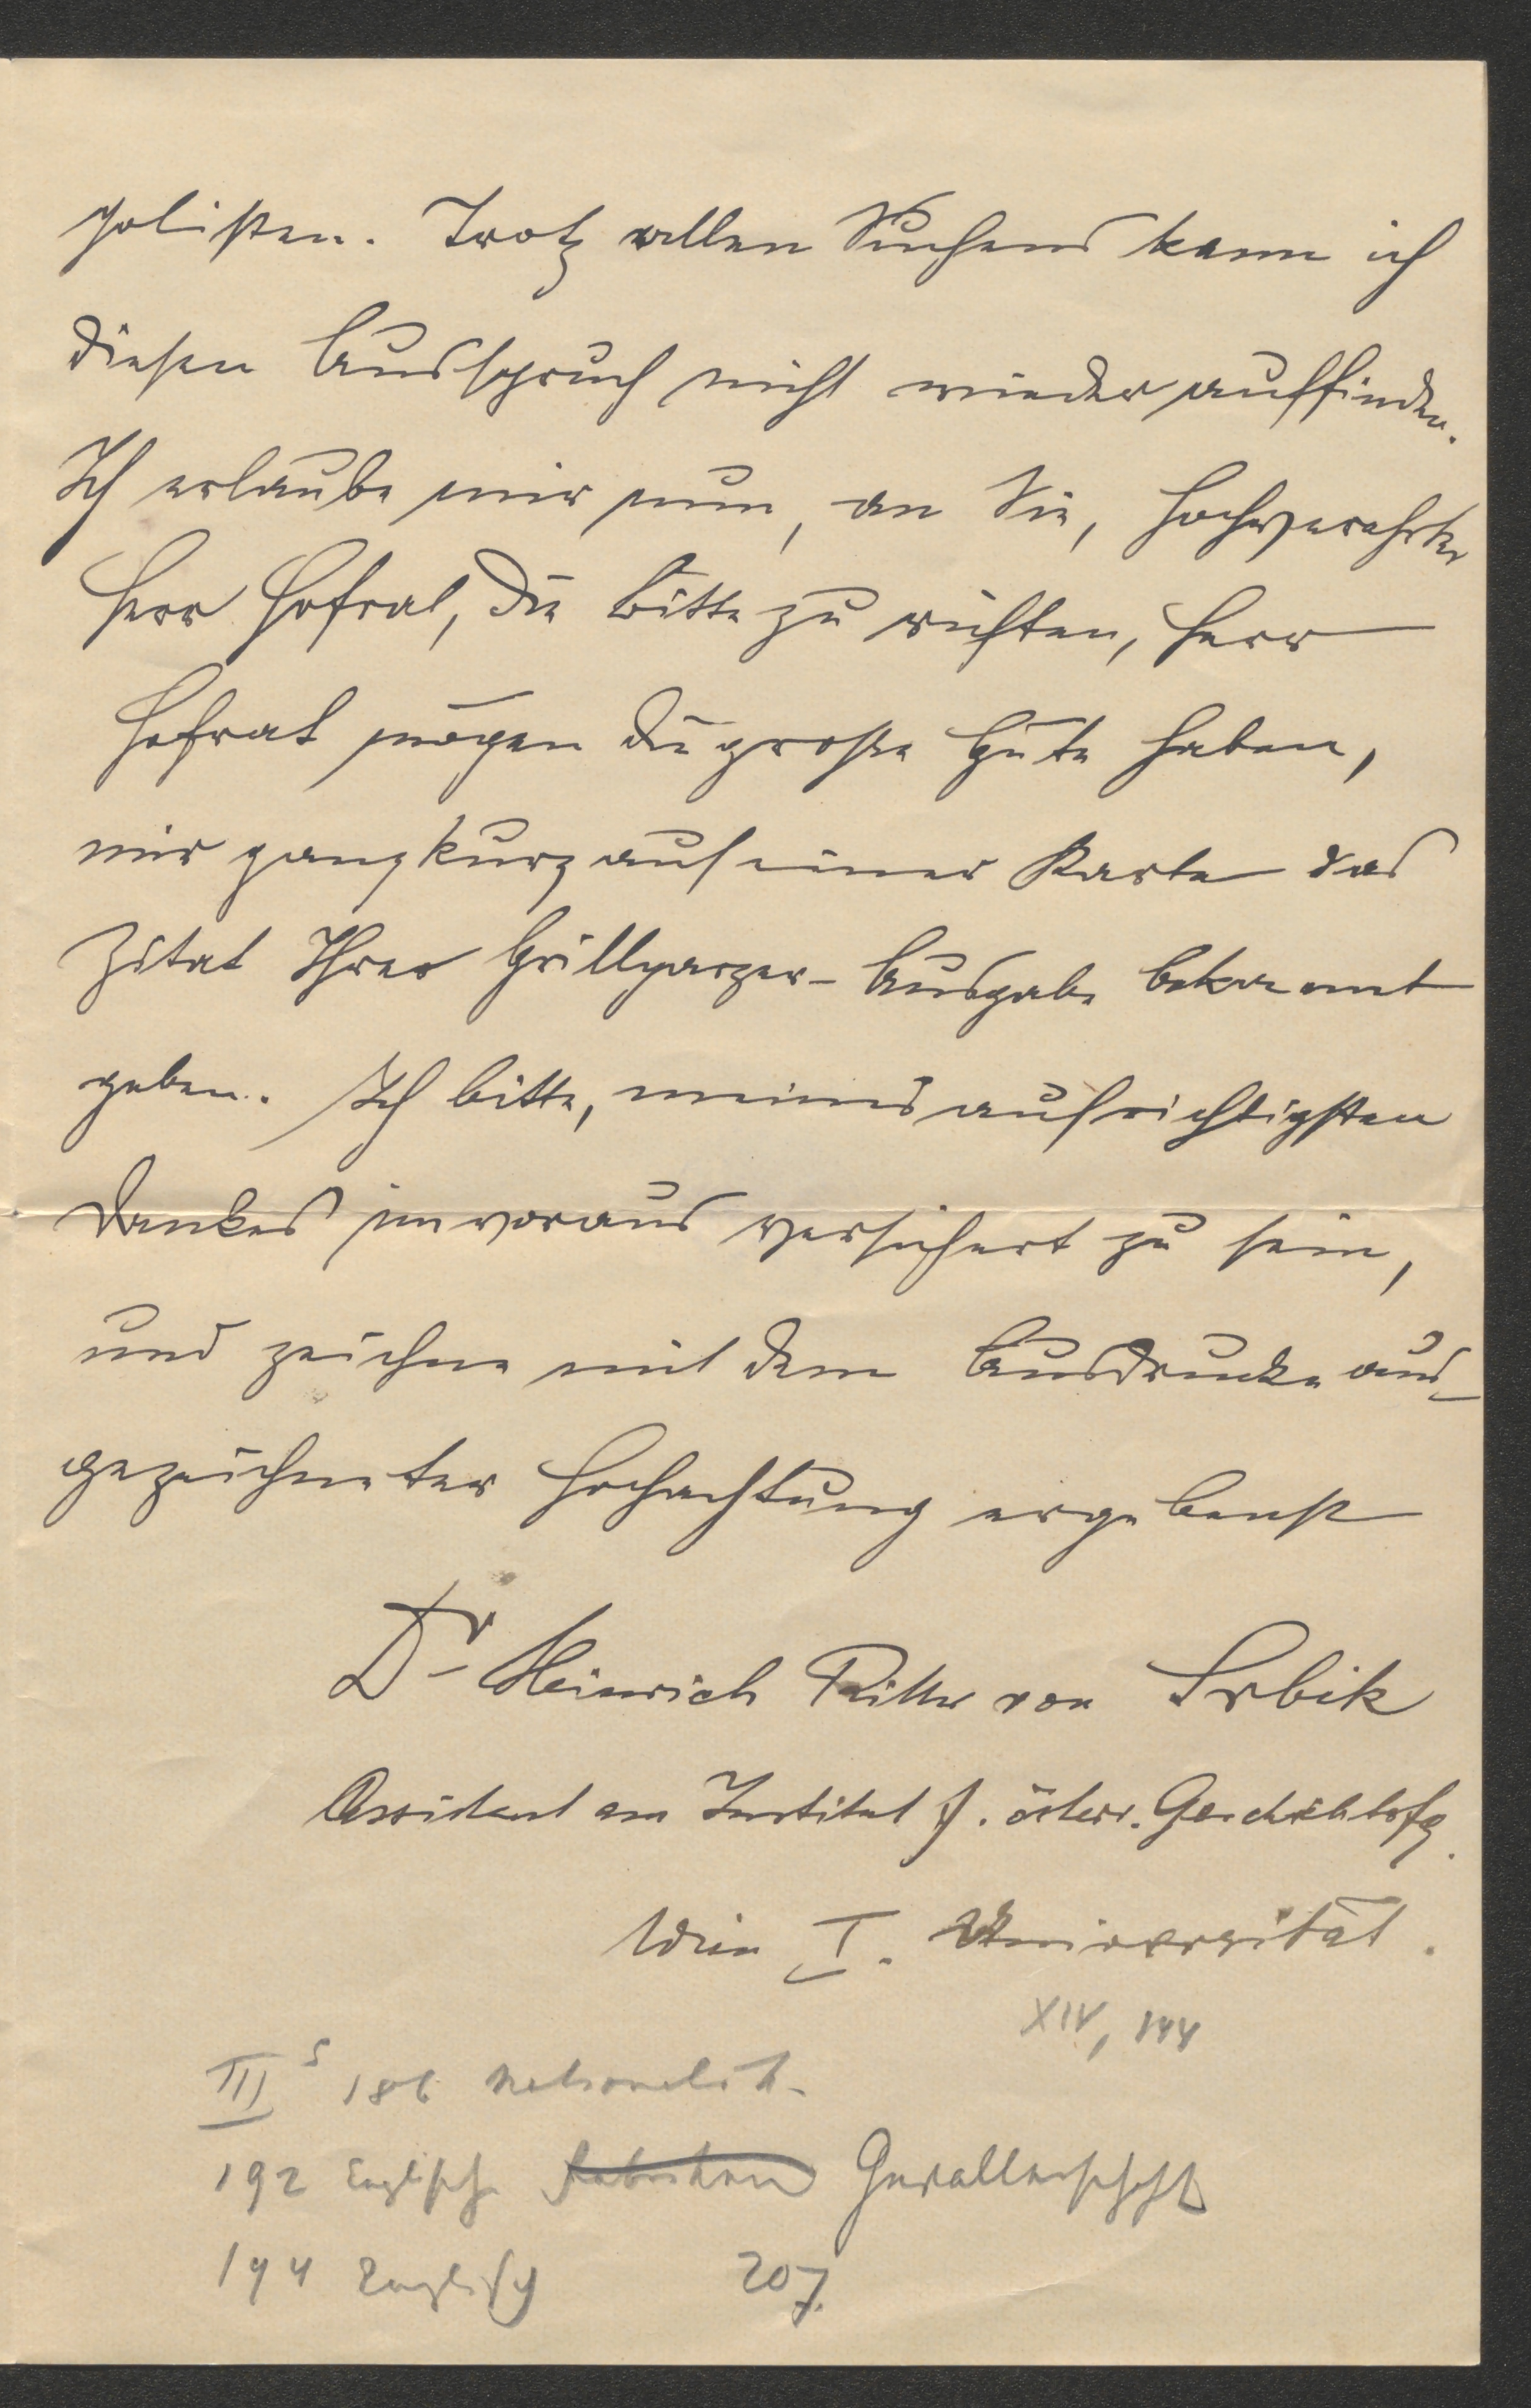 polisten. Trotz allen Suchens kann ich
diesen Ausspruch nicht wieder auffinden.
Ich erlaube mir nun, an Sie, hochverehrter
Herr Hofrat, die Bitte zu richten, Herr
Hofrat mögen die große Güte haben,
mir ganz kurz auf einer Karte das
Zitat Ihrer Grillparzer-Ausgabe bekannt
geben. Ich bitte, meines aufrichtigsten
Dankes im voraus versichert zu sein,
und zeichne mit dem Ausdrucke aus-
gezeichneter Hochachtung ergebenst
Dr Heinrich Ritter von Srbik
Assistent am Institut f. österr. Geschichtsfg.
Wien I. Universität.
XIV, 144
III 5 186 Nationalit.
192 Englische
194 Englisch 207.